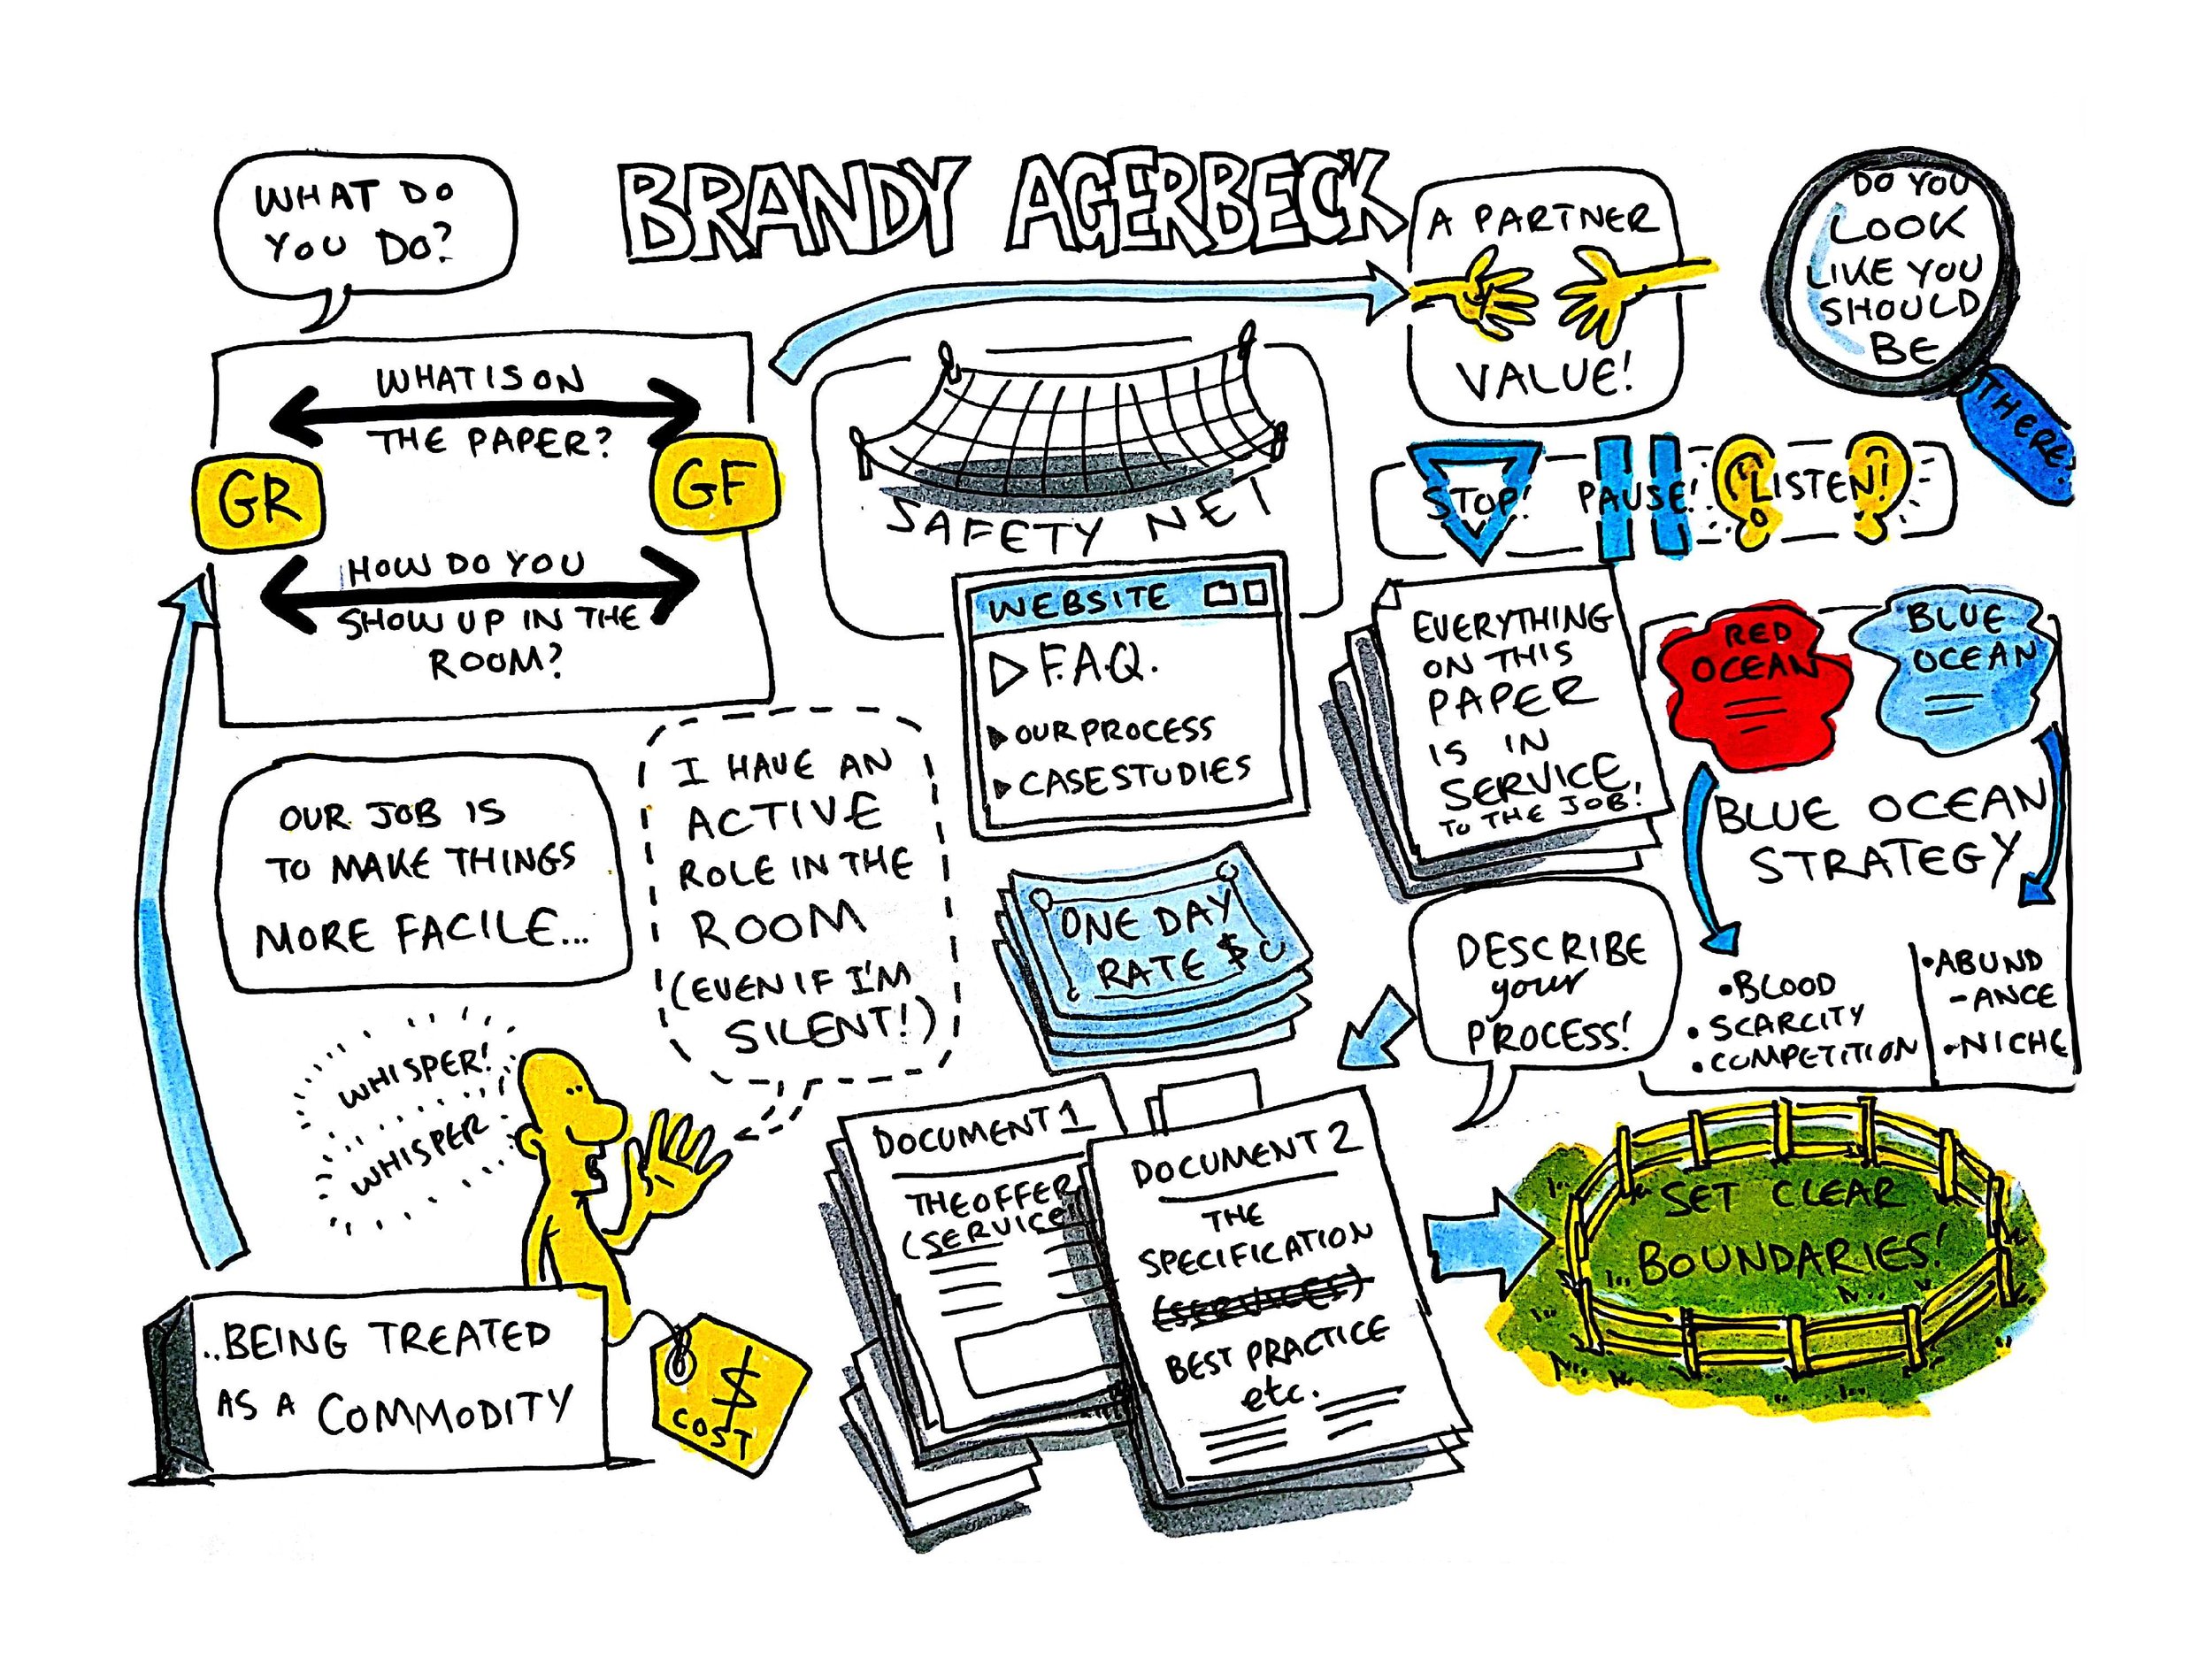 BRANDY AGERBECK
WHAT DO
YOU DO?
WHAT IS ON
THE PAPER?
GR
GF
HOW DO YOU
SHOW UP IN THE
ROOM?
OUR JOB IS
TO MAKE THINGS
MORE FACILE...
I HAVE AN
ACTIVE
ROLE IN THE
ROOM
(EVEN IF I'M
SILENT!)
WHISPER!
WHISPER
..BEING TREATED
AS A COMMODITY
$
COST
SAFETY NET
WEBSITE
F.A.Q.
OUR PROCESS
CASE STUDIES
ONE DAY
RATE $
DOCUMENT 1
THE OFFER
(SERVICE
DOCUMENT 2
THE
SPECIFICATION
(SERVICES)
BEST PRACTICE
etc.
A PARTNER
VALUE!
DO YOU
LOOK
LIKE YOU
SHOULD
BE
THERE?
STOP! PAUSE! LISTEN!
EVERYTHING
ON THIS
PAPER
IS IN
SERVICE
TO THE JOB!
RED
OCEAN
BLUE
OCEAN
BLUE OCEAN
STRATEGY
• BLOOD
• SCARCITY
• COMPETITION
• ABUND
- ANCE
• NICHE
DESCRIBE
your
PROCESS!
SET CLEAR
BOUNDARIES!